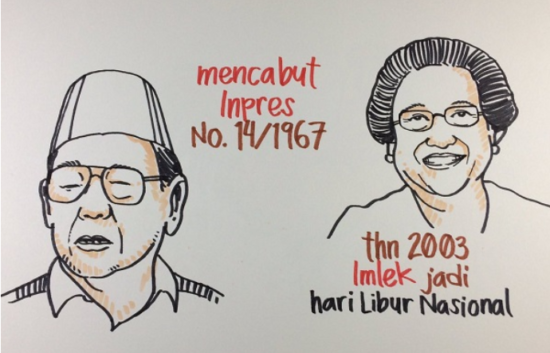 mencabut
Inpres
No. 14/1967
thn 2003
Imlek jadi
hari Libur Nasional